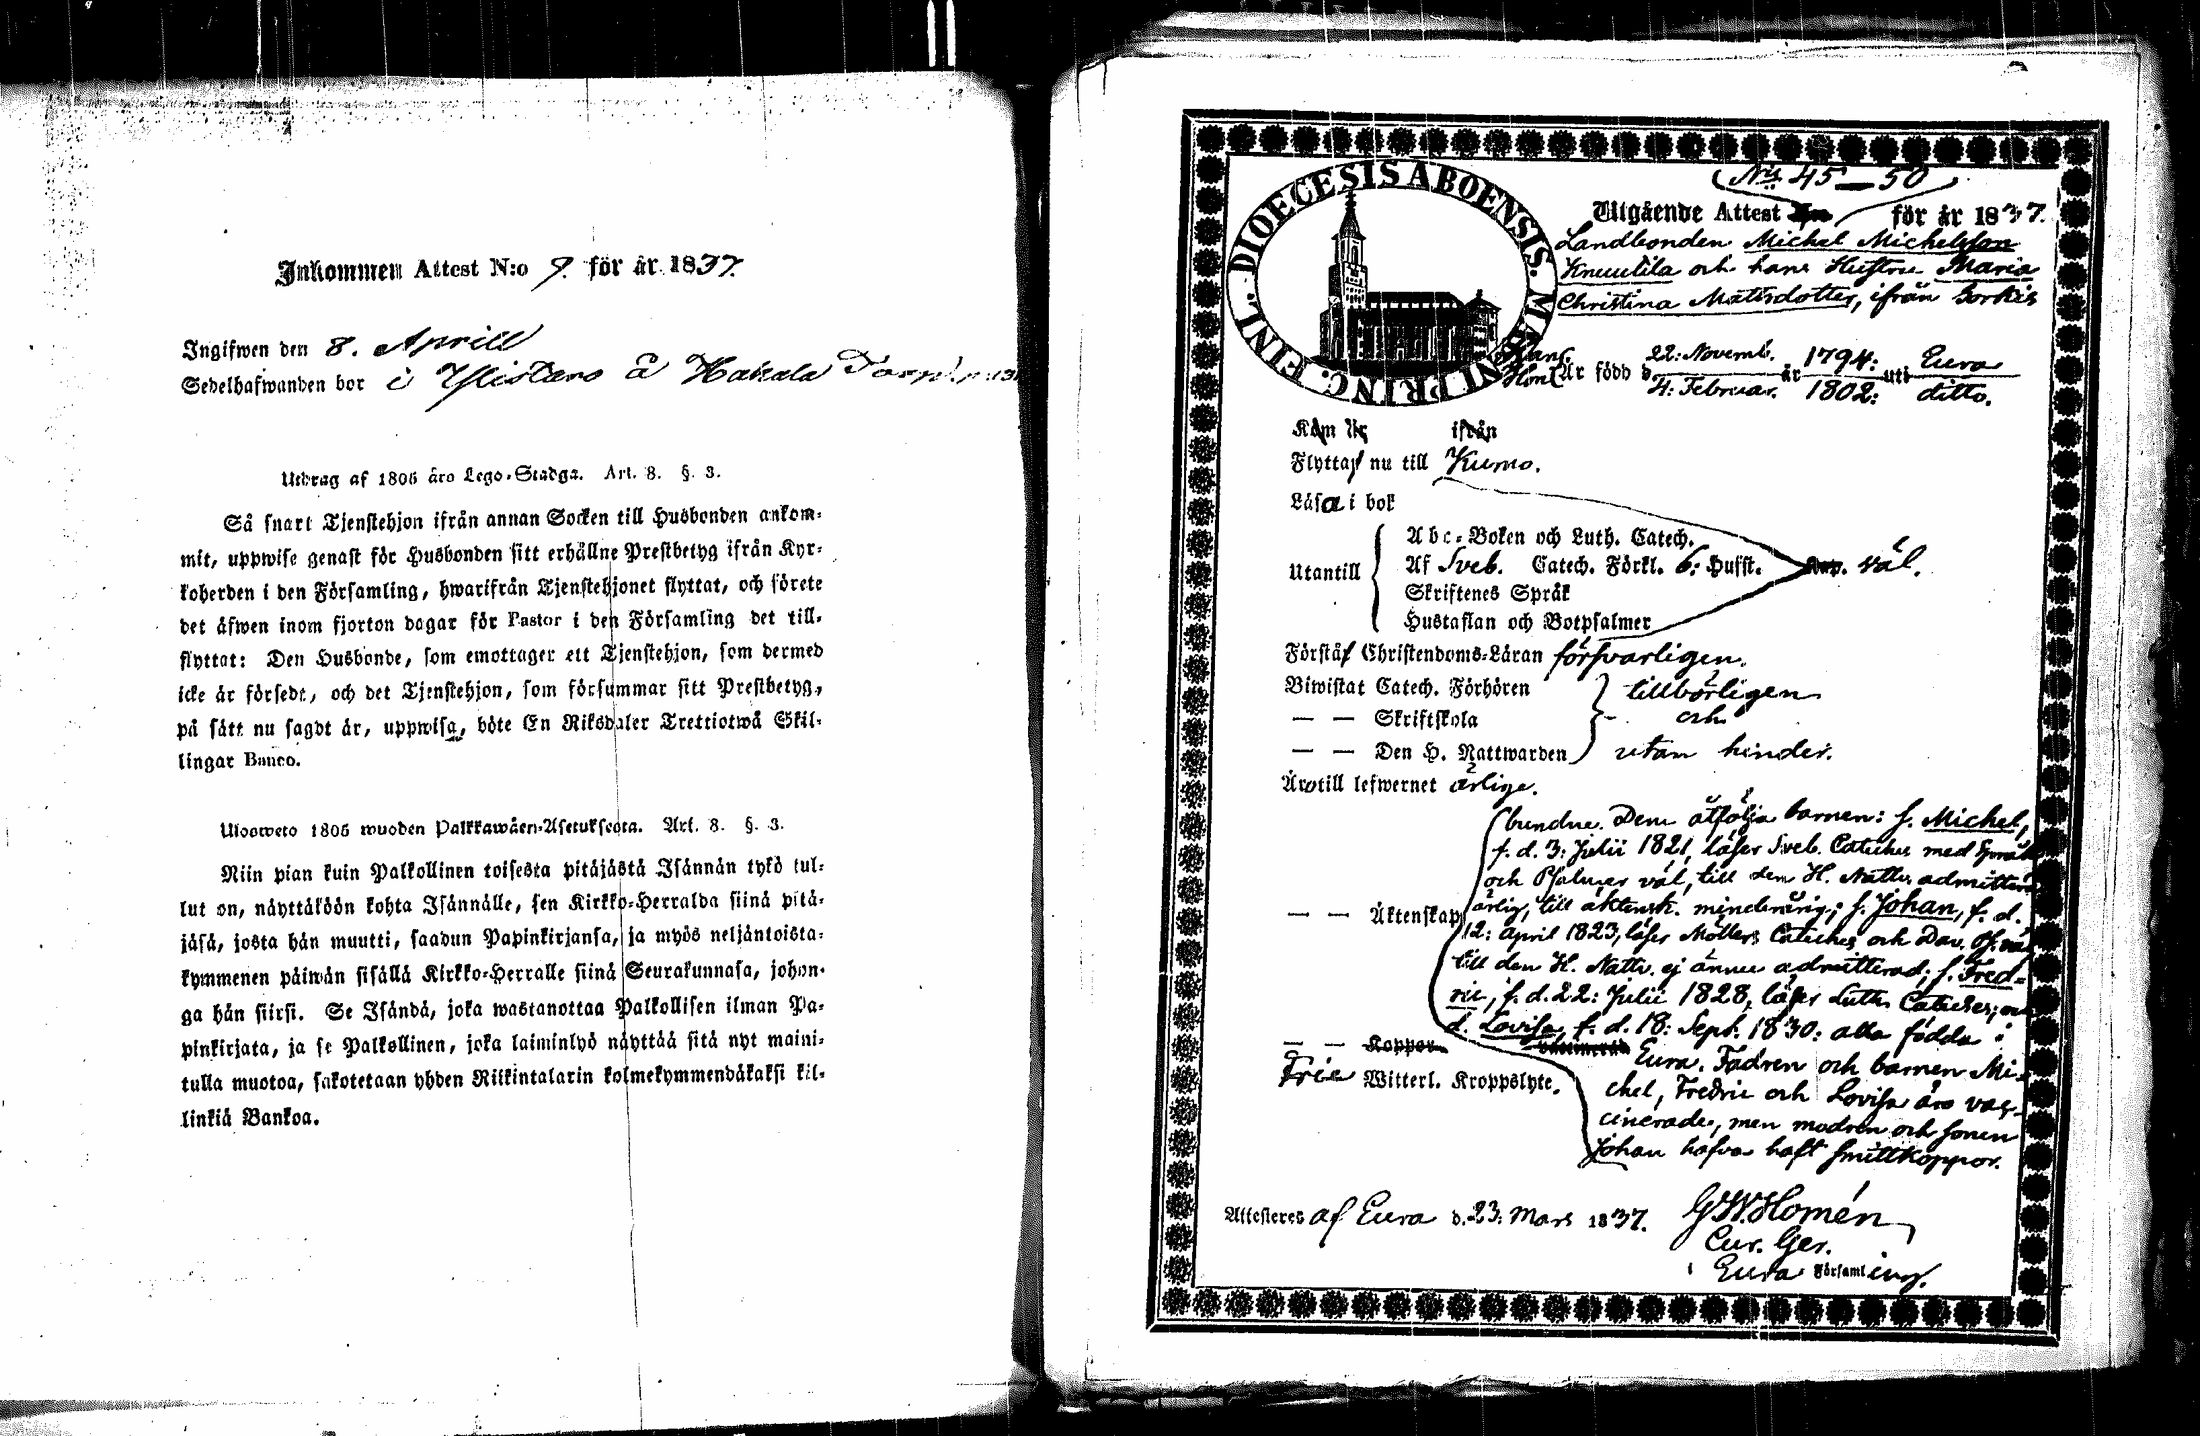 Inkommen Attest N:o 9. för år 1837.
Ingifwen den 8. Aprill
Sedelhafwanden bor i Ylistaro å Hakala
Utdrag af 1805 års Lego-Stadga. Art. 8. §. 3.
Så snart Tjenstehjon ifrån annan Socken till Husbonden ankom-
mit, uppwise genast för Husbonden sitt erhållne Prestbetyg ifrån Kyr-
koherden i den Församling, hwarifrån Tjenstehjonet flyttat, och förete
det äfwen inom fjorton dagar för Pastor i den Församling det till-
flyttat: Den Husbonde, som emottager ett Tjenstehjon, som dermed
icke är försedt, och det Tjenstehjon, som försummar sitt Prestbetyg,
på sätt nu sagdt är, uppwisa, böte En Riksdaler Trettiotwå Skil-
lingar Banco.
Ulosweto 1805 wuoden Palkkawäen-Asetuksesta. Art. 8. §. 3.
Niin pian kuin Palkollinen toisesta pitäjästä Isännän tykö tul-
lut on, näyttäköön kohta Isännälle, sen Kirkko-Herralda siinä pitä-
jäsä, josta hän muutti, saadun Papinkirjansa, ja myös neljäntoista-
kymmenen päiwän sisällä Kirkko-Herralle siinä Seurakunnasa, johon-
ga hän siirsi. Se Isändä, joka wastanottaa Palkollisen ilman Pa-
pinkirjata, ja se Palkollinen, joka laiminlyö näyttää sitä nyt maini-
tulla muotoa, sakotetaan yhden Riikintalarin kolmekymmendäkaksi kil-
linkiä Bankoa.
DIOECESIS ABOENSIS. MAGNI PRINC. FINL.
N:is 45—50
Utgående Attest N:o för år 1837.
Landbonden Michel Michelsson
Knuutila och hans Hustru Maria
Christina Mattsdotter, ifrån Sorkis
Är född d. 22: Novemb. år 1794: uti Eura
4: Februar. 1802: ditto.
Kom N: ifrån
Flyttat nu till Kumo.
Läsa i bok
Abc-Boken och Luth. Catech.
Utantill Af Sveb. Catech. Förkl. 6: Husst. Kap. väl.
Skriftenes Språk
Hustaflan och Botpsalmer
Förstår Christendoms-Läran försvarligen.
Biwistat Catech. Förhören tillbörligen
— — Skriftskola och
— — Den H. Nattwarden utan hinder.
Äro till lefwernet ärlige.
bundne. Dem åtfölja barnen: s. Michel,
f. d. 3: Julii 1821, läser Sveb. Cateches med Språk
och Psalmer väl, till den H. Nattv. admitterad
— — Äktenskap ärlig, till äktensk. minderårig; s. Johan, f. d.
12: April 1823, läser Möllers Cateches och Dav. Ps. väl
till den H. Nattv. ej ännu admitterad; s. Fred-
ric, f. d. 22: Julii 1828, läser Luth. Cateches; och
d. Lovisa, f. d. 18: Sept. 1830: alla födda i
— — Koppor vaccinerad Eura. Fadren och barnen Mi-
Frie Witterl. Kroppslyte. chel, Fredric och Lovisa äro vac-
cinerade, men modren och sonen
Johan hafva haft smittkoppor.
Attesteres af Eura d. 23: Mars 1837. G W. Homén
Cur. Ger.
i Eura Församling.